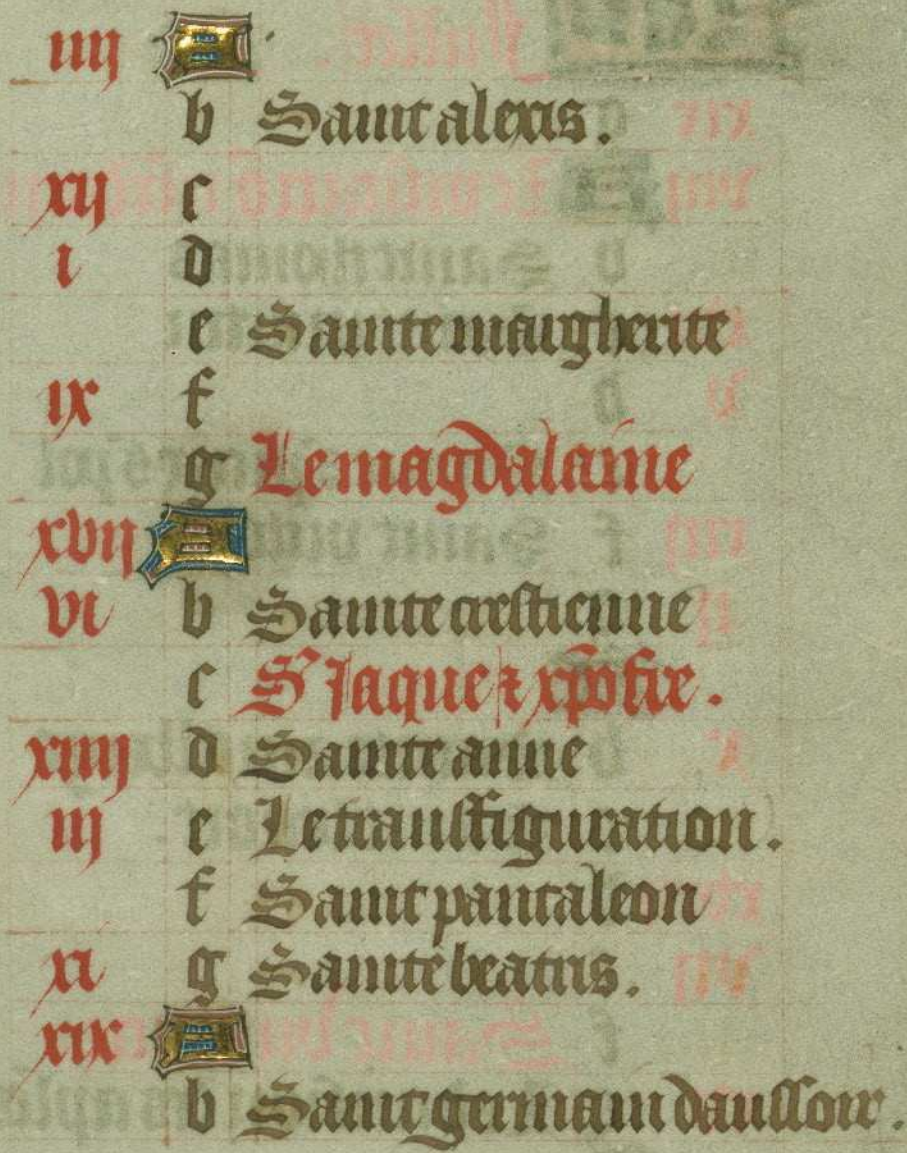 iiij A
b Saint alexis.
xij c
i d
e Sainte margherite
ix f
g Le magdalaine
xvij A
vi b Sainte crestienne
c S' Jaque ⁊ xp̄ofre.
xiiij d Sainte anne
iij e Le transfiguration.
f Saint pantaleon
xi g Sainte beatris.
xix A
b Saint germain daussoir.